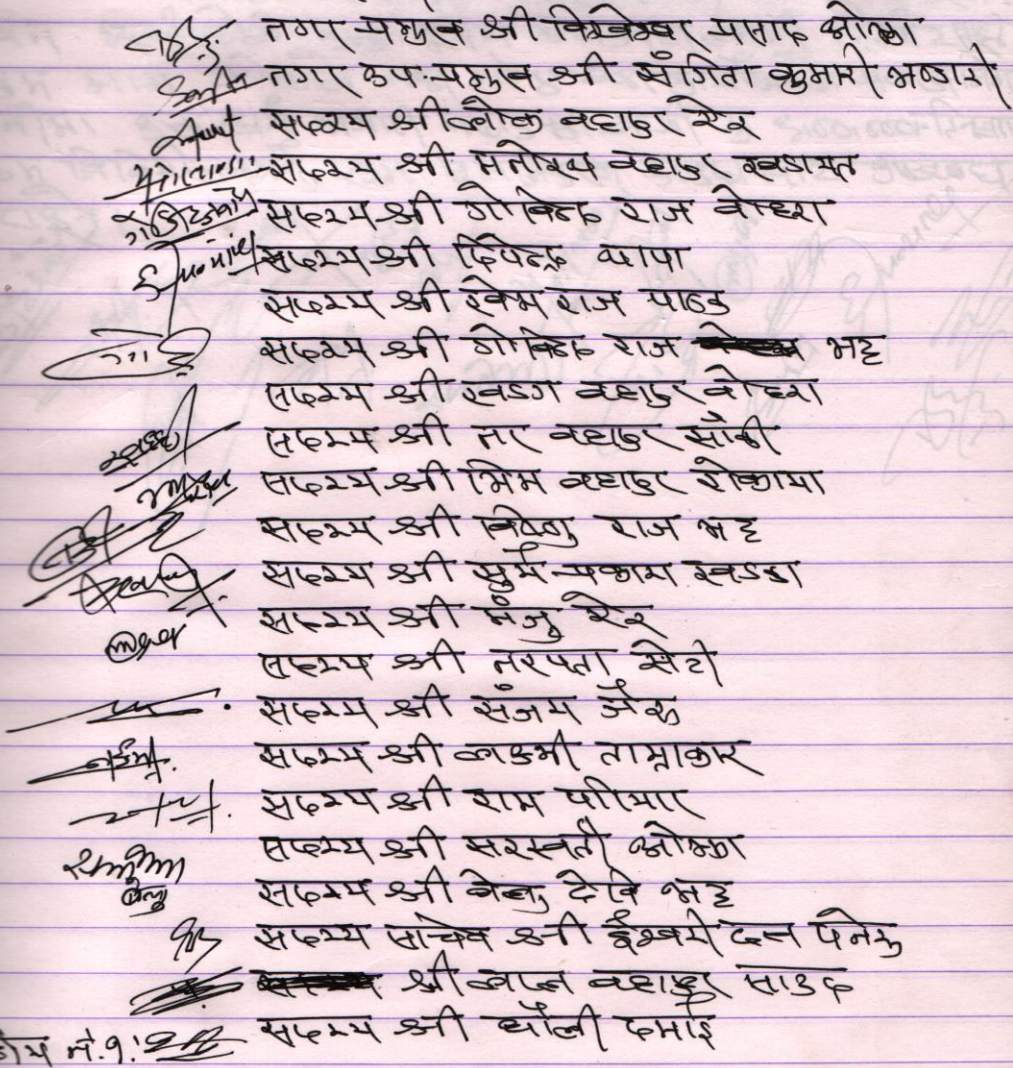 नगर प्रमुख श्री विश्वेश्वर प्रसाद ओझा
नगर उप-प्रमुख श्री संगिता कुमारी भण्डारी
सदस्य श्री लोक बहादुर ऐर
सदस्य श्री मनोरथ बहादुर खडायत
सदस्य श्री गोविन्द राज बोहरा
सदस्य श्री दिपेन्द्र थापा
सदस्य श्री खेम राज पाण्डे
सदस्य श्री गोविन्द राज भट्ट
सदस्य श्री खडग बहादुर बोहरा
सदस्य श्री नर बहादुर सौंकी
सदस्य श्री भिम बहादुर रोकाया
सदस्य श्री विष्णु राज भट्ट
सदस्य श्री सुर्य प्रकाश खड्का
सदस्य श्री मंजु ऐर
सदस्य श्री नरपता सेटी
सदस्य श्री संजय जैरु
सदस्य श्री लक्ष्मी ताम्राकार
सदस्य श्री राम परियार
सदस्य श्री सरस्वती ओझा
सदस्य श्री वेलु देवि भट्ट
सदस्य सचिव श्री ईश्वरी दत्त पनेरु
श्री लाल बहादुर साउद
सदस्य श्री धौली दमाई
नं.१